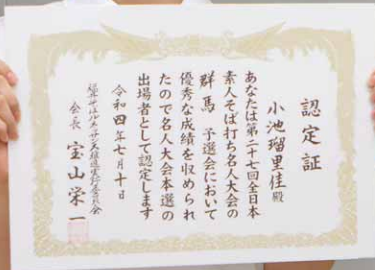 認定証
小池瑠里佳殿
あなたは第二十七回全日本
素人そば打ち名人大会の
群馬 予選会において
優秀な成績を収められ
たので名人大会本選の
出場者として認定します
令和四年七月十日
会長 宝山栄一